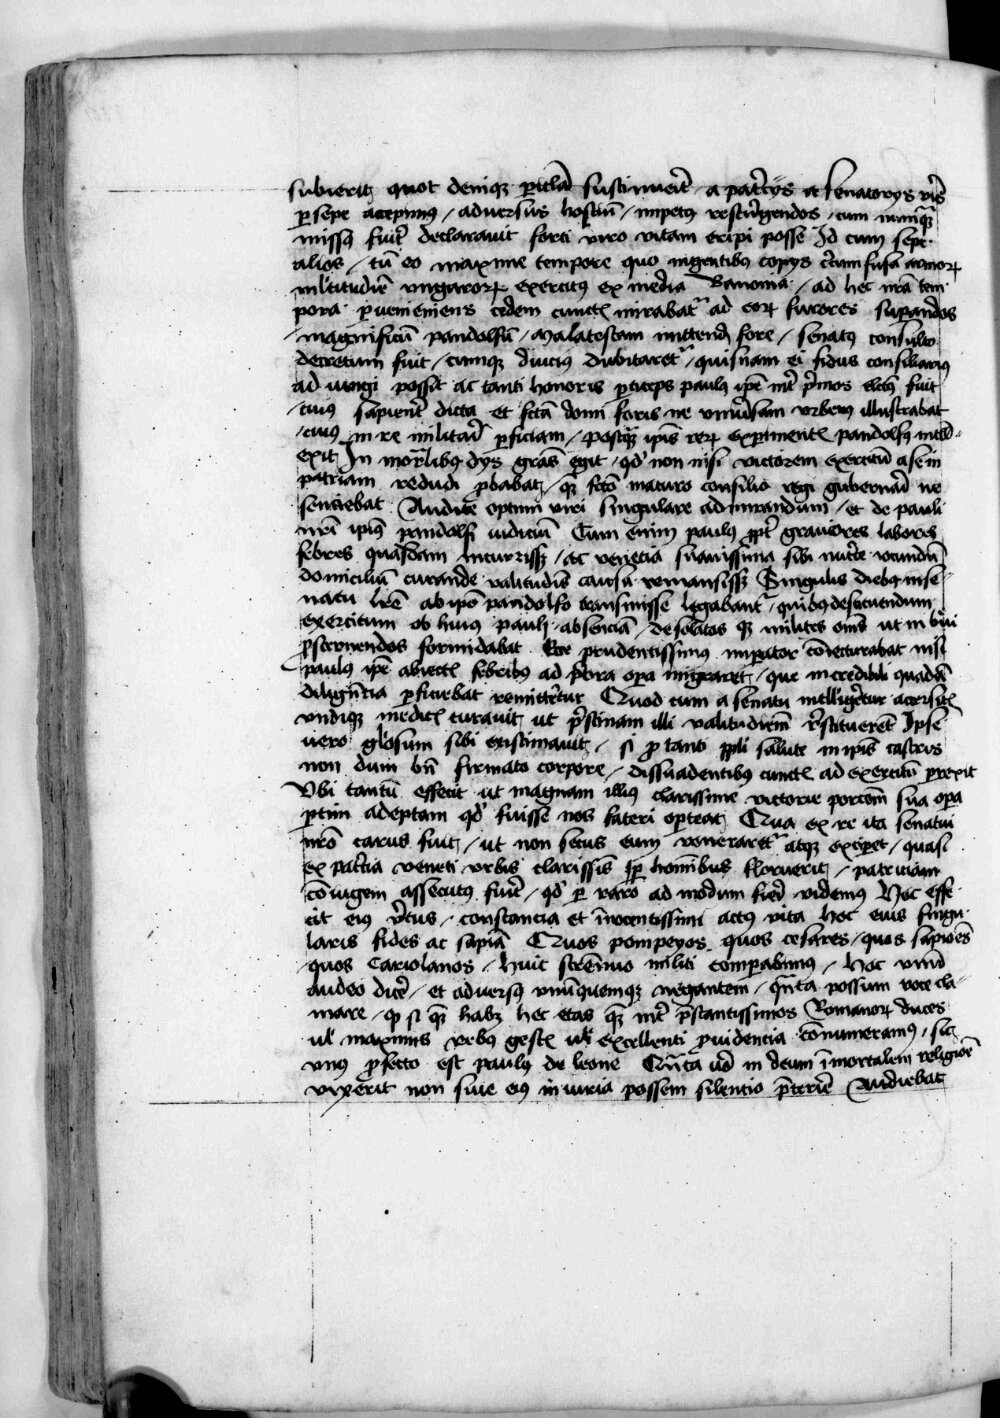 subierit quot deniqz pericla sustinuerit a patricijs ac senatorijs viris
persepe accepimus / adversus hostium / impetus restringendos / cum nunquam
missus fuit declaravit forti viro vitam eripi posse Id cum sepe
alios / tum eo maxime tempore quo ingentibus copijs circumfusa armorum
multitudine ungarorum exercitus ex media Panonia / ad hec nostra tem
pora perveniens cedem cunctis mirabatur ad eorum furores supandos
magnificum pandolfum / Malatestam mittendum fore / senatus consulto
decretum fuit / cumque diucius dubitaretur / quisnam ei fidus consiliarius
ad iungi possit ac tanti honoris particeps paulus ipse inter primos electus fuit
cuius sapienter dicta et facta domi foris ne universam urbem illustrabat
cuius in re militari periciam / postquam ipsis rerum experimentis pandolfus intell
exit In mortalibus dijs gratias egit / quod non nisi victorem exercitum a se in
patriam reduci probabat / quem facto maturo consilio regi gubernari ne
senciebat Audite optimi viri singulare admirandum / et de pauli
nostri ipsius pandolfi iudicium Cum enim paulus propter graviores labores
febres quasdam incurrisset / ac venecia suavissima sibi nutrice iocundum
domicilium curande valitudinis causa remansisset Singulis diebus in se
natu litere ab ipso pandolfo transmisse legabantur quibus destituendum
exercitum ob huius pauli absenciam / desolatos qz milites omnes ut in brevi
prosternendos formidabat Rite prudentissimus imperator coniecturabat nisi
paulus ipse abiectis febribus ad priora opera migraret / que incredibili quadam
diligencia perficiebat remitteretur Quod cum a senatu intelligeretur acersitis
undiqz medicis curavit ut pristinam illi valitudinem restituerent Ipse
vero gloriosum sibi existimavit / si pro tanti populi salute in ipsis castris
non dum bene firmato corpore / dissuadentibus cunctis ad exercitum prexit
Ubi tantum effecit ut magnam illius clarissime victorie porcionem sua opera
partim adeptam quod fuisse nos fateri oporteat Qua ex re ita senatui
nostro carus fuit / ut non secus eum veneraretur atqz exciperet / quasi
ex patricia veneti urbis clarissimis semper hominibus floruerit / patriciam
coniugem assecutus fuit / quod per raro ad modum fieri videmus Hoc effe
cit eius virtus constancia et innocentissimi actus vita hoc eius singu
laris fides ac sapiencia Quos pompeyos quos cesares / quos sapiones
quos Cariolanos / huic strennuo militi comparabimus / Hoc unum
audeo dicere / et adversus unumquemqz negantem / quanta possum voce cla
mare / quod si quem habet hec etas quem inter prestantissimos Romanorum duces
vel maximis rebus gestis vel excellenti providencia connumeramus / sic
unus profecto est paulus de leone Quanta vero in deum immortalem religione
vixerit non sine eius iniuria possem silentio preterire Audiebat